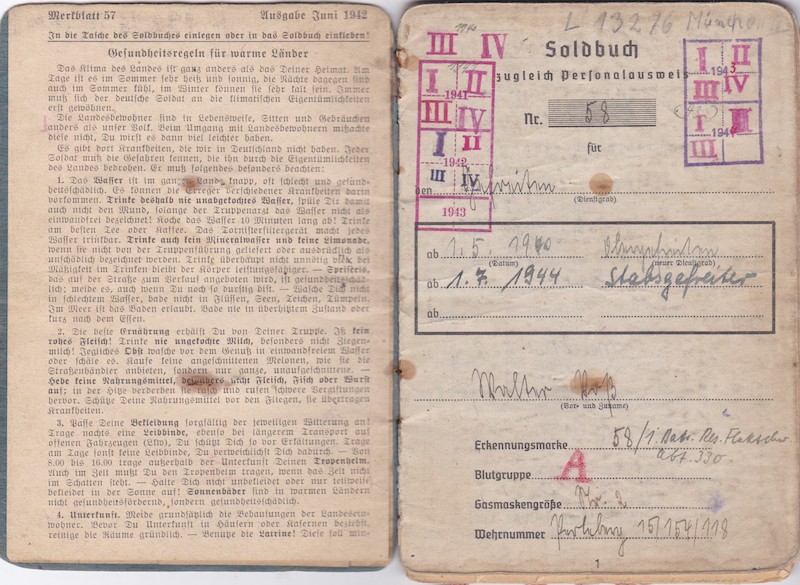 Merkblatt 57 Ausgabe Juni 1942
In die Tasche des Soldbuches einlegen oder in das Soldbuch einkleben!
Gesundheitsregeln für warme Länder
Das Klima des Landes ist ganz anders als das Deiner Heimat. Am
Tage ist es im Sommer sehr heiß und sonnig, die Nächte dagegen sind
auch im Sommer kühl, im Winter können sie sehr kalt sein. Immer
muß sich der deutsche Soldat an die klimatischen Eigentümlichkeiten
erst gewöhnen.
Die Landesbewohner sind in Lebensweise, Sitten und Gebräuchen
anders als unser Volk. Beim Umgang mit Landesbewohnern mißachte
diese nicht, Du wirst es dann viel leichter haben.
Es gibt dort Krankheiten, die wir in Deutschland nicht haben. Jeder
Soldat muß die Gefahren kennen, die ihn durch die Eigentümlichkeiten
des Landes bedrohen. Er muß folgendes besonders beachten:
1. Das Wasser ist im ganzen Lande knapp, oft schlecht und gesund-
heitsschädlich. Es können die Erreger verschiedener Krankheiten darin
vorkommen. Trinke deshalb nie unabgekochtes Wasser, spüle Dir damit
auch nicht den Mund, solange der Truppenarzt das Wasser nicht als
einwandfrei bezeichnet! Koche das Wasser 10 Minuten lang ab! Trinke
am besten Tee oder Kaffee. Das Tornisterfiltergerät macht jedes
Wasser trinkbar. Trinke auch kein Mineralwasser und keine Limonade,
wenn sie nicht von der Truppenführung geliefert oder ausdrücklich als
unschädlich bezeichnet werden. Trinke überhaupt nicht unnötig viel! Bei
Mäßigkeit im Trinken bleibt der Körper leistungsfähiger. — Speiseeis,
das auf der Straße zum Verkauf angeboten wird, ist gesundheitsschäd-
lich; meide es, auch wenn Du noch so durstig bist. — Wasche Dich nicht
in schlechtem Wasser, bade nicht in Flüssen, Seen, Teichen, Tümpeln.
Im Meer ist das Baden erlaubt. Bade nie in überhitztem Zustand oder
kurz nach dem Essen.
2. Die beste Ernährung erhältst Du von Deiner Truppe. Iß kein
rohes Fleisch! Trinke nie ungekochte Milch, besonders nicht Ziegen-
milch! Jegliches Obst wasche vor dem Genuß in einwandfreiem Wasser
oder schäle es. Kaufe keine angeschnittenen Melonen, wie sie die
Straßenhändler anbieten, sondern nur ganze, unaufgeschnittene. —
Hebe keine Nahrungsmittel, besonders nicht Fleisch, Fisch oder Wurst
auf; in der Hitze verderben sie rasch und rufen schwere Vergiftungen
hervor. Schütze Deine Nahrungsmittel vor den Fliegen, sie übertragen
Krankheiten.
3. Passe Deine Bekleidung sorgfältig der jeweiligen Witterung an!
Trage nachts eine Leibbinde, ebenso bei längerem Transport auf
offenen Fahrzeugen (Lkw), Du schützt Dich so vor Erkältungen. Trage
am Tage sonst keine Leibbinde, Du verweichlichst Dich dadurch. — Von
8.00 bis 16.00 trage außerhalb der Unterkunft Deinen Tropenhelm.
Auch im Zelt mußt Du den Tropenhelm tragen, wenn das Zelt nicht
im Schatten steht. — Halte Dich nicht unbekleidet oder nur teilweise
bekleidet in der Sonne auf! Sonnenbäder sind in warmen Ländern
nicht gesundheitsfördernd, sondern gesundheitsschädlich.
4. Unterkunft. Meide grundsätzlich die Behausungen der Landesein-
wohner. Bevor Du Unterkunft in Häusern oder Kasernen beziehst,
reinige die Räume gründlich. — Benutze die Latrine! Diese soll min-
L 13276
III IV
Soldbuch
zugleich Personalausweis
I II
1941
III IV
I II
1942
III IV
1943
I II
1943
III IV
I II
194
III
Nr. 58
für
den Gefreiten
(Dienstgrad)
ab 1.5. 1940 Obergefreiten
(Datum) (neuer Dienstgrad)
ab 1.7. 1944 Stabsgefreiter
ab
Walter
(Vor- und Zuname)
Erkennungsmarke 58/1. Battr. Res. Flakscheinw.
Abt. 330
Blutgruppe A
Gasmaskengröße Nr. 2
Wehrnummer Perleberg 15/154/118
1